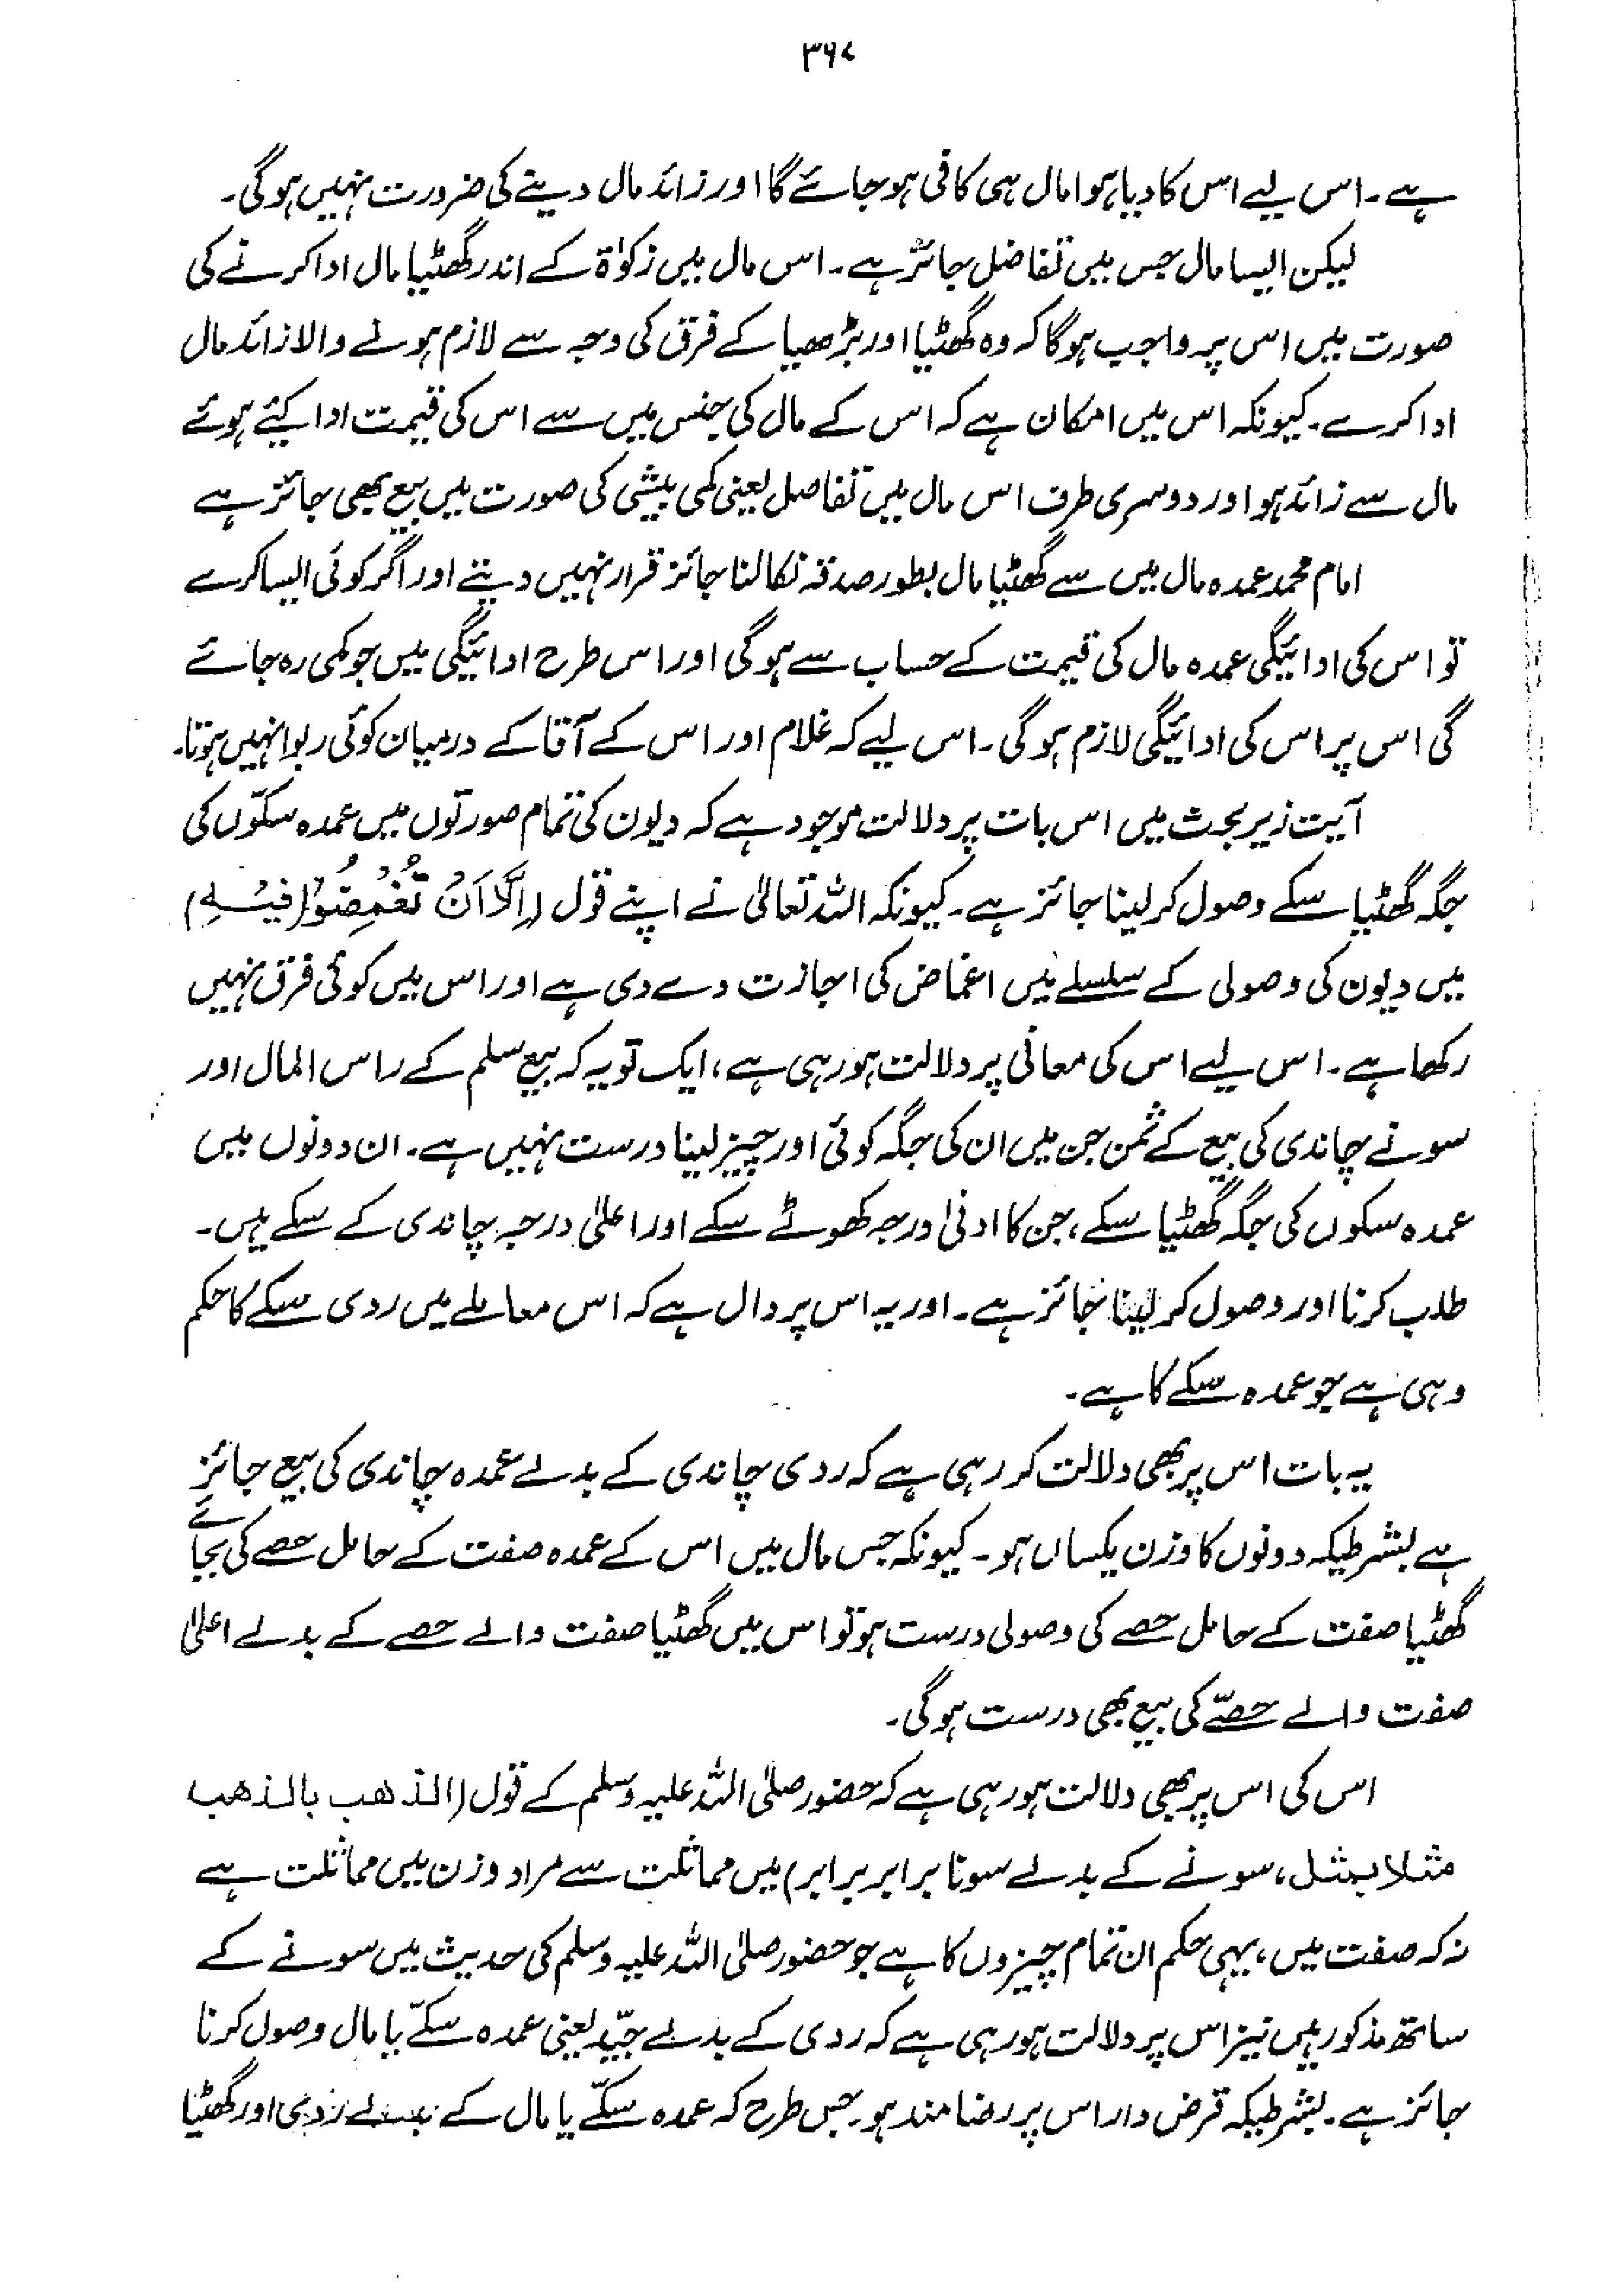 ۳۶۷
ہے۔ اس لیے اس کا دیا ہوا مال ہی کافی ہو جائے گا اور زائد مال دینے کی ضرورت نہیں ہو گی۔
لیکن ایسا مال جس میں تفاضل جائز ہے۔ اس مال میں زکوٰۃ کے اندر گھٹیا مال ادا کرنے کی
صورت میں اس پر واجب ہوگا کہ وہ گھٹیا اور بڑھیا کے فرق کی وجہ سے لازم ہونے والا زائد مال
ادا کرے۔ کیونکہ اس میں امکان ہے کہ اس کے مال کی جنس میں سے اس کی قیمت ادا کیئے ہوئے
مال سے زائد ہو اور دوسری طرف اس مال میں تفاصل یعنی کمی بیشی کی صورت میں بیع بھی جائز ہے
امام محمد عمدہ مال میں سے گھٹیا مال بطور صدقہ نکالنا جائز قرار نہیں دیتے اور اگر کوئی ایسا کرے
تو اس کی ادائیگی عمدہ مال کی قیمت کے حساب سے ہو گی اور اس طرح ادائیگی میں جو کمی رہ جائے
گی اس پر اس کی ادائیگی لازم ہو گی۔ اس لیے کہ غلام اور اس کے آقا کے درمیان کوئی ربوا نہیں ہوتا۔
آیت زیر بحث میں اس بات پر دلالت موجود ہے کہ دیون کی تمام صورتوں میں عمدہ سکّوں کی
جگہ گھٹیا سکے وصول کر لینا جائز ہے۔ کیونکہ اللہ تعالیٰ نے اپنے قول (اِلَّا اَنْ تُغْمِضُوْا فِیْہِ)
میں دیون کی وصولی کے سلسلے میں اغماض کی اجازت دے دی ہے اور اس میں کوئی فرق نہیں
رکھا ہے۔ اس لیے اس کی معانی پر دلالت ہو رہی ہے، ایک تو یہ کہ بیع سلم کے راس المال اور
سونے چاندی کی بیع کے ثمن جن میں ان کی جگہ کوئی اور چیز لینا درست نہیں ہے۔ ان دونوں میں
عمدہ سکوں کی جگہ گھٹیا سکے، جن کا ادنیٰ درجہ کھوٹے سکے اور اعلیٰ درجہ چاندی کے سکے ہیں۔
طلب کرنا اور وصول کر لینا جائز ہے۔ اور یہ اس پر دال ہے کہ اس معاملے میں ردی سکے کا حکم
وہی ہے جو عمدہ سکے کا ہے۔
یہ بات اس پر بھی دلالت کر رہی ہے کہ ردی چاندی کے بدلے عمدہ چاندی کی بیع جائز
ہے بشرطیکہ دونوں کا وزن یکساں ہو۔ کیونکہ جس مال میں اس کے عمدہ صفت کے حامل حصے کی بجائے
گھٹیا صفت کے حامل حصے کی وصولی درست ہو تو اس میں گھٹیا صفت والے حصے کے بدلے اعلیٰ
صفت والے حصّے کی بیع بھی درست ہو گی۔
اس کی اس پر بھی دلالت ہو رہی ہے کہ حضور صلی اللہ علیہ وسلم کے قول (الذھب بالذھب
مثلا بمثل، سونے کے بدلے سونا برابر برابر) میں مماثلت سے مراد وزن میں مماثلت ہے
نہ کہ صفت میں، یہی حکم ان تمام چیزوں کا ہے جو حضور صلی اللہ علیہ وسلم کی حدیث میں سونے کے
ساتھ مذکور ہیں نیز اس پر دلالت ہو رہی ہے کہ ردی کے بدلے جیّد یعنی عمدہ سکّے یا مال وصول کرنا
جائز ہے۔ بشرطیکہ قرض دار اس پر رضامند ہو۔ جس طرح کہ عمدہ سکّے یا مال کے بدلے ردی اور گھٹیا